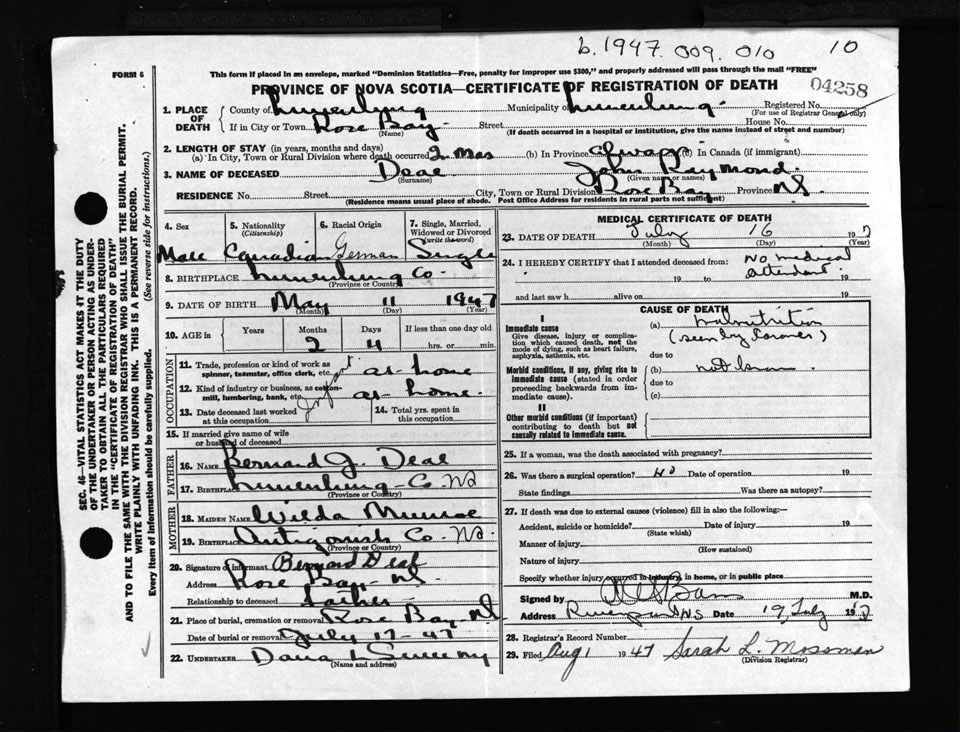 b. 1947. 009. 010 10
FORM 6
This form if placed in an envelope, marked "Dominion Statistics—Free, penalty for improper use $300," and properly addressed will pass through the mail "FREE"
PROVINCE OF NOVA SCOTIA—CERTIFICATE OF REGISTRATION OF DEATH
04258
1. PLACE OF DEATH County of Lunenburg Municipality of Lunenburg Registered No.
(For use of Registrar General only)
If in City or Town Rose Bay Street House No.
(Name) (If death occurred in a hospital or institution, give the name instead of street and number)
2. LENGTH OF STAY (in years, months and days)
(a) In City, Town or Rural Division where death occurred 2 mos (b) In Province always (c) In Canada (if immigrant)
3. NAME OF DECEASED Deal John Raymond
(Surname) (Given name or names)
RESIDENCE No. Street City, Town or Rural Division Rose Bay Province NS
(Residence means usual place of abode. Post Office Address for residents in rural parts not sufficient)
4. Sex 5. Nationality (Citizenship) 6. Racial Origin 7. Single, Married, Widowed or Divorced (write the word)
Male Canadian German Single
8. BIRTHPLACE Lunenburg Co
(Province or Country)
9. DATE OF BIRTH May 11 1947
(Month) (Day) (Year)
10. AGE in Years Months Days If less than one day old
2 4 hrs. or min.
OCCUPATION
11. Trade, profession or kind of work as spinner, teamster, office clerk, etc. at home
12. Kind of industry or business, as cotton-mill, lumbering, bank, etc. at home
Infant
13. Date deceased last worked at this occupation 14. Total yrs. spent in this occupation
15. If married give name of wife or husband of deceased
FATHER
16. NAME Bernard J. Deal
17. BIRTHPLACE Lunenburg Co. NS
(Province or Country)
MOTHER
18. MAIDEN NAME Wilda Munroe
19. BIRTHPLACE Antigonish Co. NS.
(Province or Country)
20. Signature of informant Bernard Deal
Address Rose Bay NS
Relationship to deceased father
21. Place of burial, cremation or removal Rose Bay NS
Date of burial or removal July 17-47
22. UNDERTAKER Dana L Sweeny
(Name and address)
MEDICAL CERTIFICATE OF DEATH
23. DATE OF DEATH July 16 1947
(Month) (Day) (Year)
24. I HEREBY CERTIFY that I attended deceased from: No medical attendant
19 to 19
and last saw h alive on 19
CAUSE OF DEATH
I
Immediate cause
Give disease, injury or complication which caused death, not the mode of dying, such as heart failure, asphyxia, asthenia, etc.
(a) Malnutrition
(seen by Coroner)
due to
Morbid conditions, if any, giving rise to immediate cause (stated in order proceeding backwards from immediate cause).
(b) not known
due to
(c)
II
Other morbid conditions (if important) contributing to death but not causally related to immediate cause.
25. If a woman, was the death associated with pregnancy?
26. Was there a surgical operation? No Date of operation 19
State findings Was there an autopsy?
27. If death was due to external causes (violence) fill in also the following:—
Accident, suicide or homicide? Date of injury 19
(State which)
Manner of injury
(How sustained)
Nature of injury
Specify whether injury occurred in industry, in home, or in public place
Signed by M.D.
Address NS Date 19 July 1947
28. Registrar's Record Number
29. Filed Aug 1 1947 Sarah L. Mossman
(Division Registrar)
SEC. 46—VITAL STATISTICS ACT MAKES IT THE DUTY OF THE UNDERTAKER OR PERSON ACTING AS UNDERTAKER TO OBTAIN ALL THE PARTICULARS REQUIRED IN THE "CERTIFICATE OF REGISTRATION OF DEATH"
AND TO FILE THE SAME WITH THE DIVISION REGISTRAR WHO SHALL ISSUE THE BURIAL PERMIT.
WRITE PLAINLY WITH UNFADING INK. THIS IS A PERMANENT RECORD.
Every item of information should be carefully supplied. (See reverse side for instructions.)